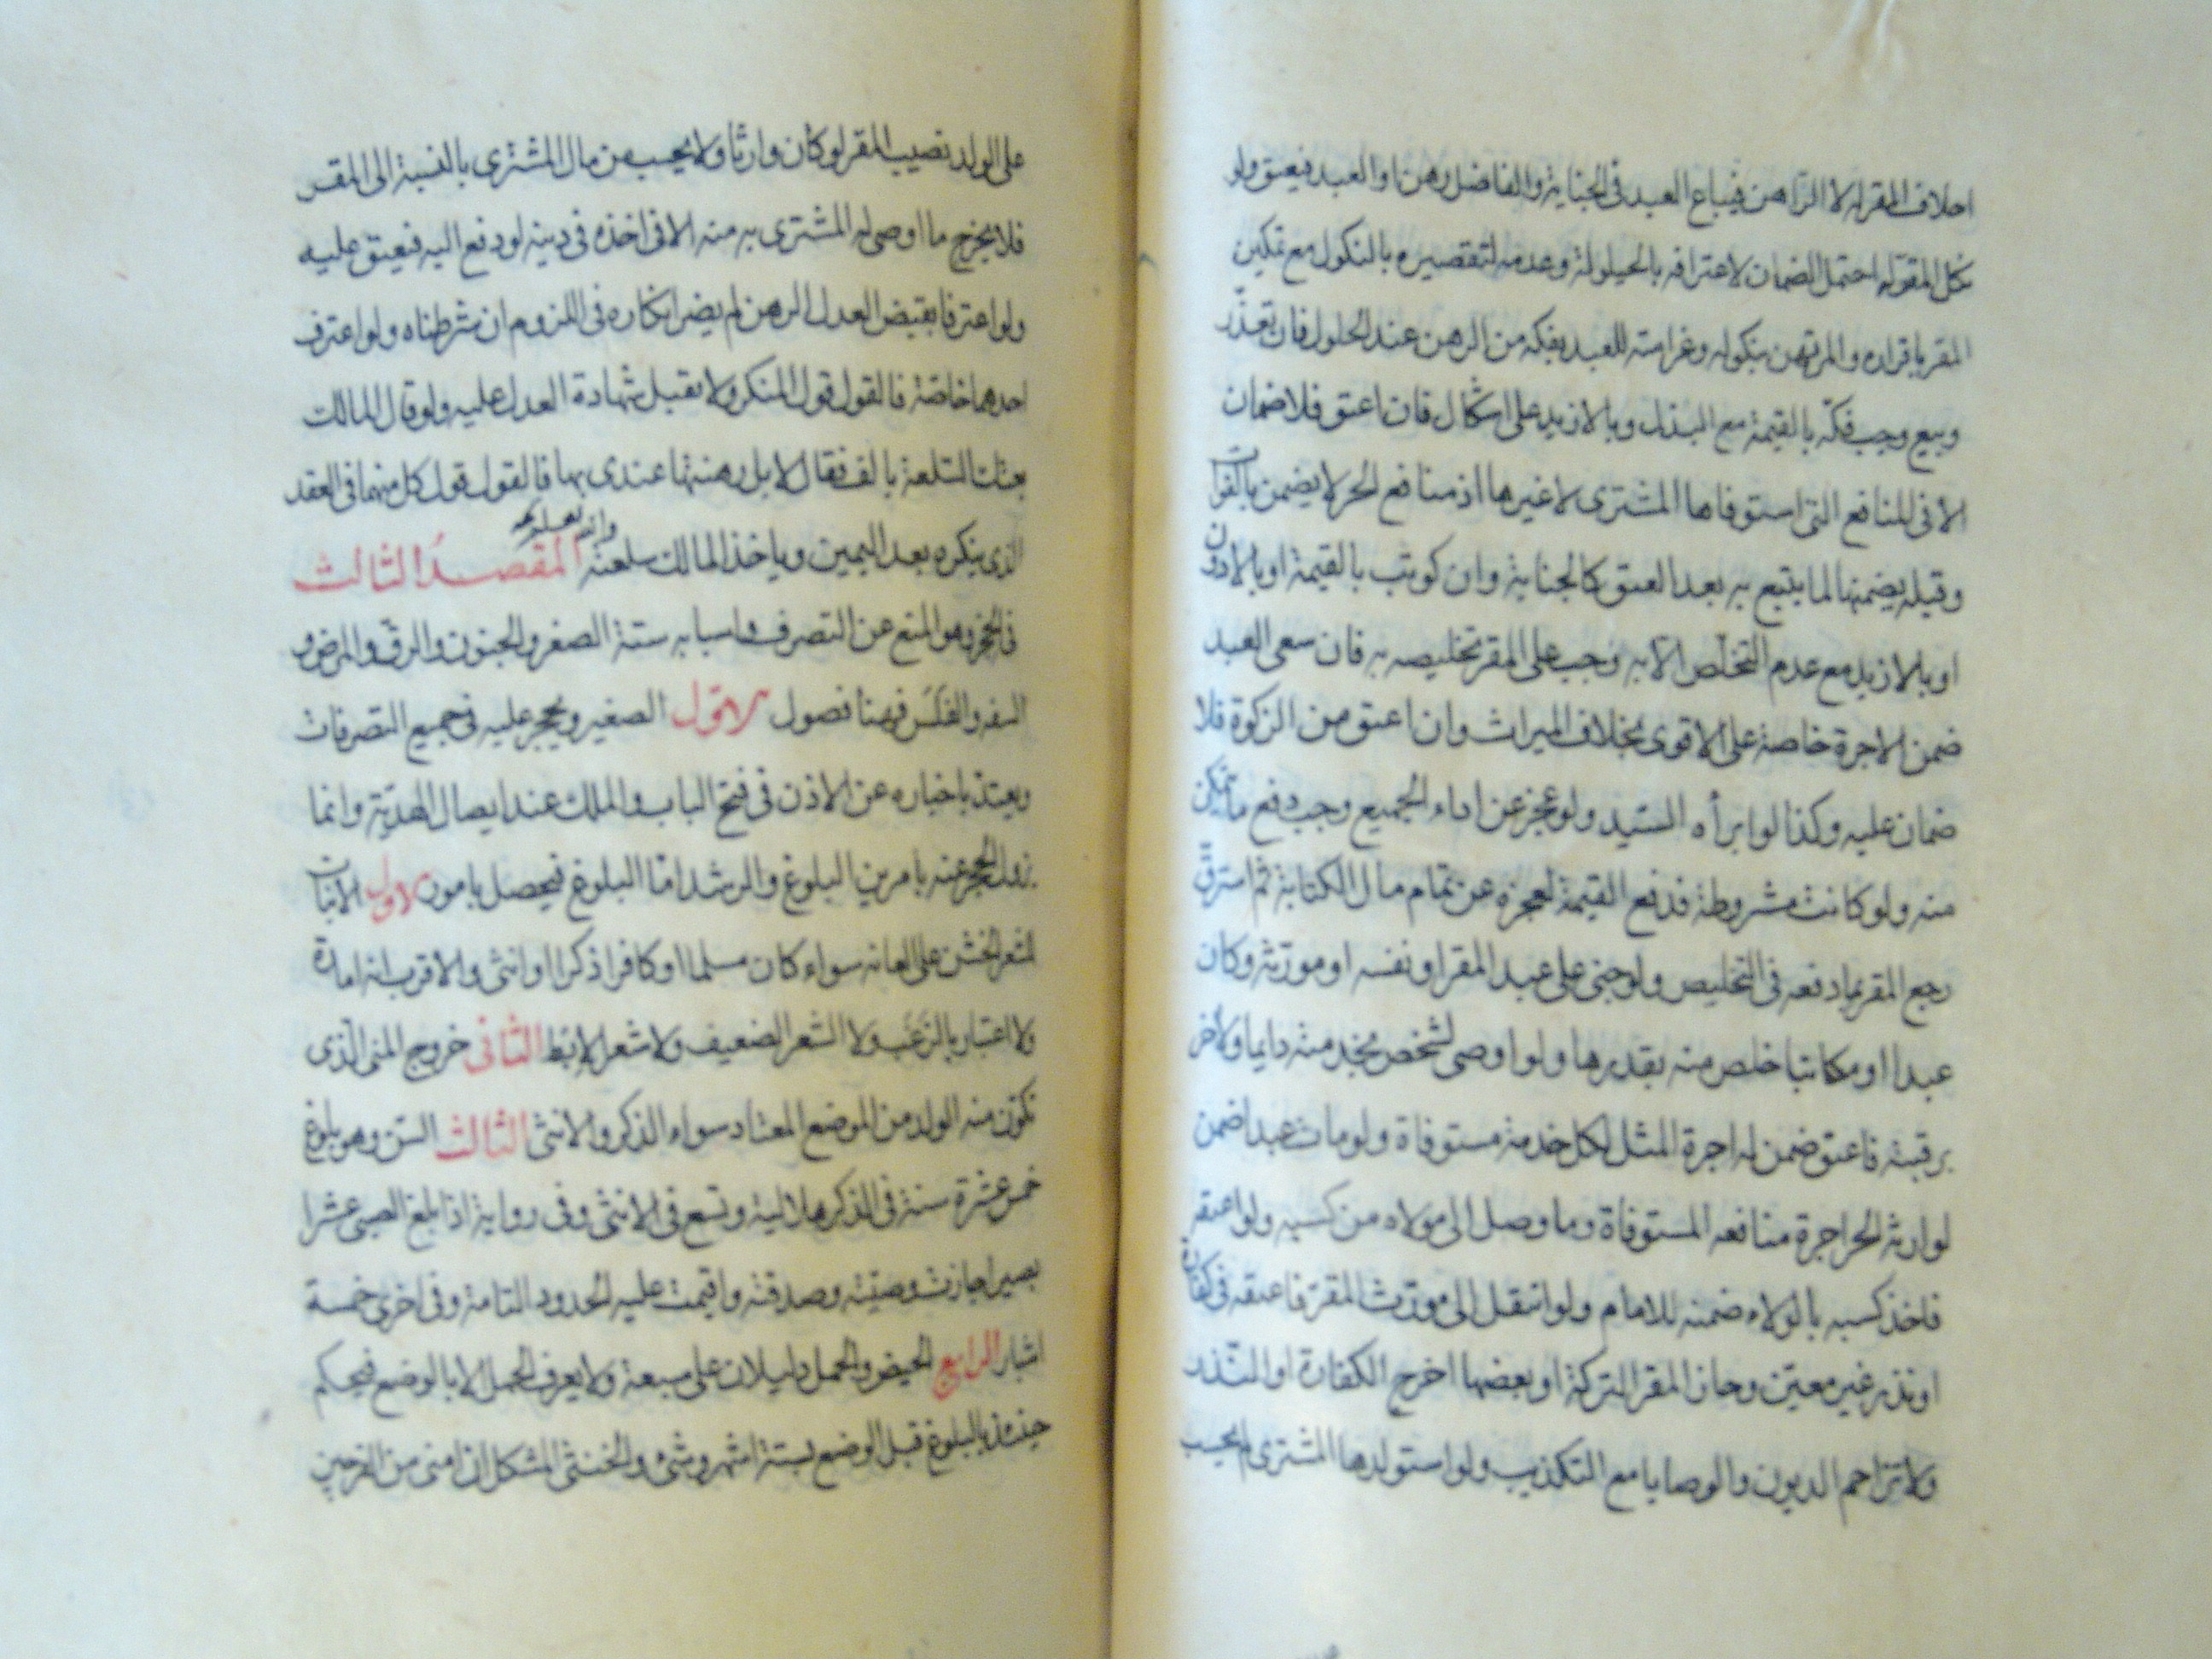 احلاف المقر له لا الراهن فيباع العبد في الجناية والفاضل رهن او العبد فيعتق ولو
نكل المقر له احتمل الضمان لاعترافه بالحيلولة وعدمه لتقصيره بالنكول مع تمكين
المقر باقراره والمرتهن بنكوله وغرامته للعبد بفكه من الرهن عند الحلول فان تعذر
وبيع وجب فكه بالقيمة مع البذل وبالازيد على اشكال فان اعتق فلا ضمان
الا في المنافع التي استوفاها المشترى لا غيرها اذ منافع الحر لا يضمن بالفوات
وقيل يضمنها لما يتبع به بعد العتق كالجناية وان كوتب بالقيمة او بالادون
او بالازيد مع عدم التخلص الا به وجب على المقر تخليصه به فان سعى العبد
ضمن الاجرة خاصة على الاقوى بخلاف الميراث وان اعتق من الزكوة فلا
ضمان عليه وكذا لو ابرأه السيد ولو عجز عن اداء الجميع وجب دفع ما يتمكن
منه ولو كانت مشروطة فدفع القيمة لعجزه عن تمام مال الكتابة ثم استرق
رجع المقر بما دفعه في التخليص ولو جنى على عبد المقر او نفسه او مورثه وكان
عبدا او مكاتبا خلص منه بقدرها ولو اوصى لشخص بخدمته دايما ولاخر
برقبته فاعتق ضمن له اجرة المثل لكل خدمة مستوفاة ولو مات عبدا ضمن
لوارثه الحر اجرة منافعه المستوفاة وما وصل الى مولاه من كسبه ولو اعتقر
فاخذ كسبه بالولاء ضمنه للامام ولو انتقل الى مورث المقر فاعتقه في كفارة
او نذر غير معين وحاز المقر التركة او بعضها اخرج الكفارة او النذر
ولا تزاحم الديون والوصايا مع التكذيب ولو استولدها المشترى لم يحسب
على الولد نصيب المقر لو كان وارثا ولا يحسب من مال المشترى بالنسبة الى المقر
فلا يخرج ما اوصى له المشترى به منه الا في اخذه في دينه لو دفع اليه فيعتق عليه
ولو اعترفا بقبض العدل الرهن لم يضر انكاره في اللزوم ان شرطناه ولو اعترف
احدهما خاصة فالقول قول المنكر ولا يقبل شهادة العدل عليه ولو قال المالك
بعتك السلعة بالف فقال لا بل رهنتها عندى بها فالقول قول كل منهما في العقد
الذى ينكره بعد اليمين وياخذ المالك سلعته المقصد الثالث
في الحجر وهو المنع عن التصرف واسبابه ستة الصغر والجنون والرق والمرض و
السفه والفلس فهنا فصول الاول الصغير ويحجر عليه في جميع التصرفات
ويعتد باخباره عن الاذن في فتح الباب والملك عند ايصال الهدية وانما
يزول الحجر عنه بامرين البلوغ والرشد اما البلوغ فيحصل بامور الاول الانبات
لشعر الخشن على العانه سواء كان مسلما او كافرا ذكرا او انثى والاقرب انه امارة
ولا اعتبار بالزغب ولا الشعر الضعيف ولا شعر الابط الثاني خروج المنى الذى
تكون منه الولد من الموضع المعتاد سواء الذكر والانثى الثالث السن وهو بلوغ
خمس عشرة سنة في الذكر هلالية وتسع في الانثى وفى رواية اذا بلغ الصبى عشرا
بصيرا جازت وصيته وصدقته واقيمت عليه الحدود التامة وفى اخرى خمسة
اشبار الرابع الحيض والحمل دليلان على سبقه ولا يعرف الحمل الا بالوضع فيحكم
حينئذ بالبلوغ قبل الوضع بستة اشهر وشئ والخنثى المشكل ان امنى من الفرجين